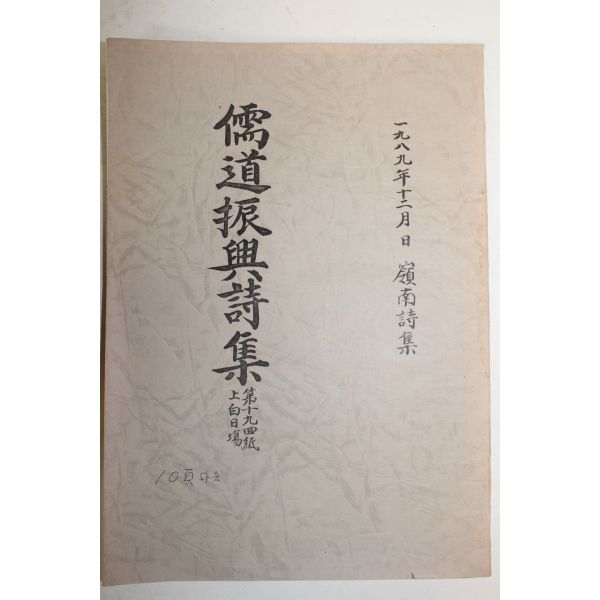 一九八九年十二月 日 嶺南詩集
儒道振興詩集
第十九回紙
上白日場
10頁 다오